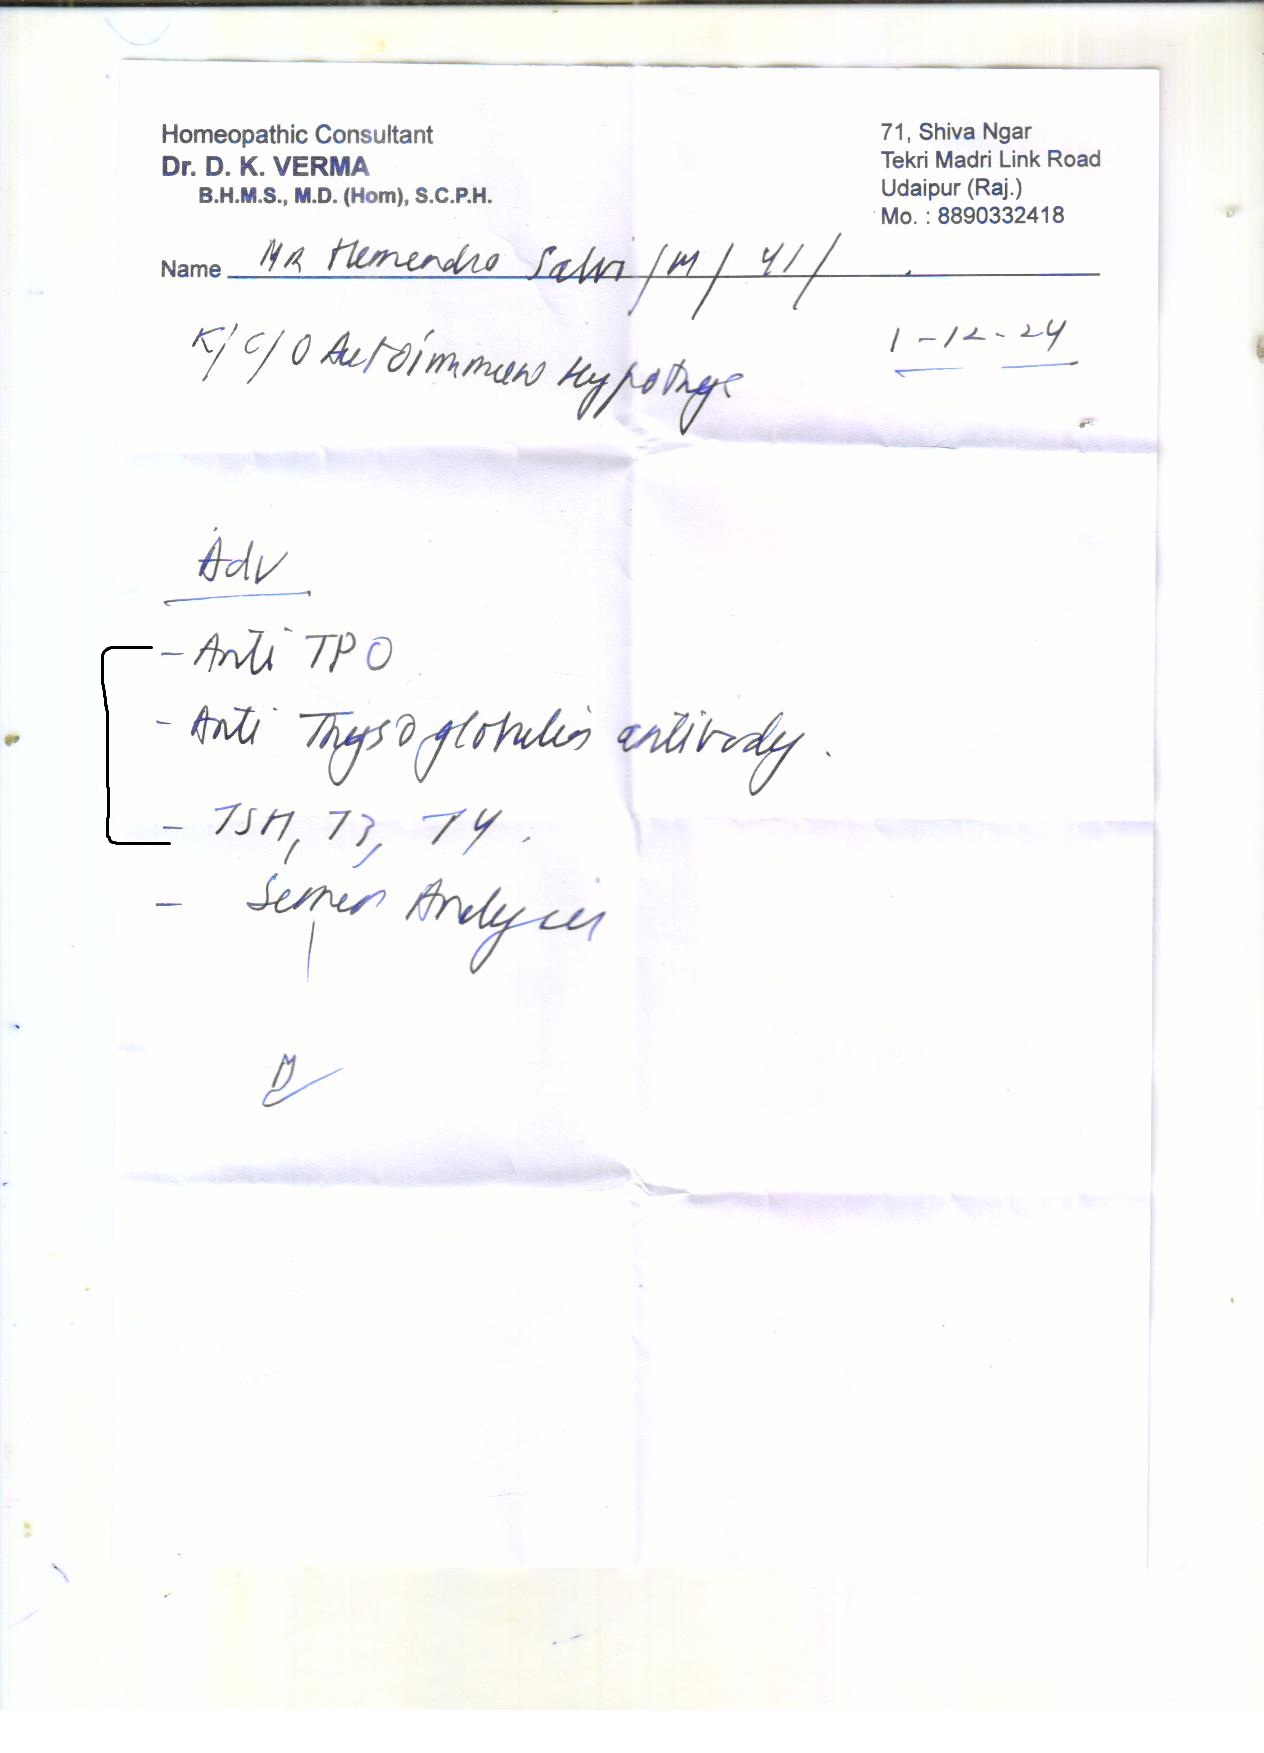 Homeopathic Consultant
Dr. D. K. VERMA
B.H.M.S., M.D. (Hom), S.C.P.H.
71, Shiva Ngar
Tekri Madri Link Road
Udaipur (Raj.)
Mo. : 8890332418
Name MR Hemendra Salvi /M/ 41/
1-12-24
K/C/O Autoimmune
Adv
- Anti TPO
- Anti Thyroglobulin antibody.
- TSH, T3, T4.
- Semen Analysis